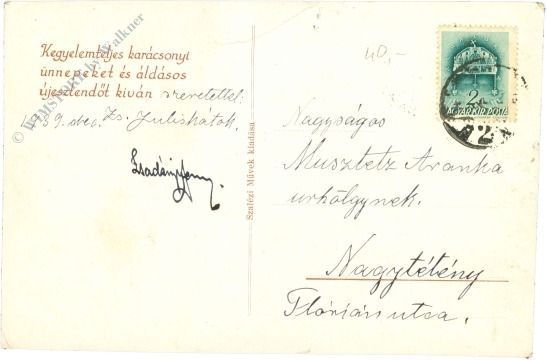 Kegyelemteljes karácsonyi
ünnepeket és áldásos
újesztendőt kiván szeretettel:
939. dec. Zs. Juliskátok.
Szalézi Művek kiadása
40,-
2
MAGYAR KIR. POSTA
72
Nagyságos
Musztetz Aranka
urhölgynek.
Nagytétény
Flórián utca.
by Walkner